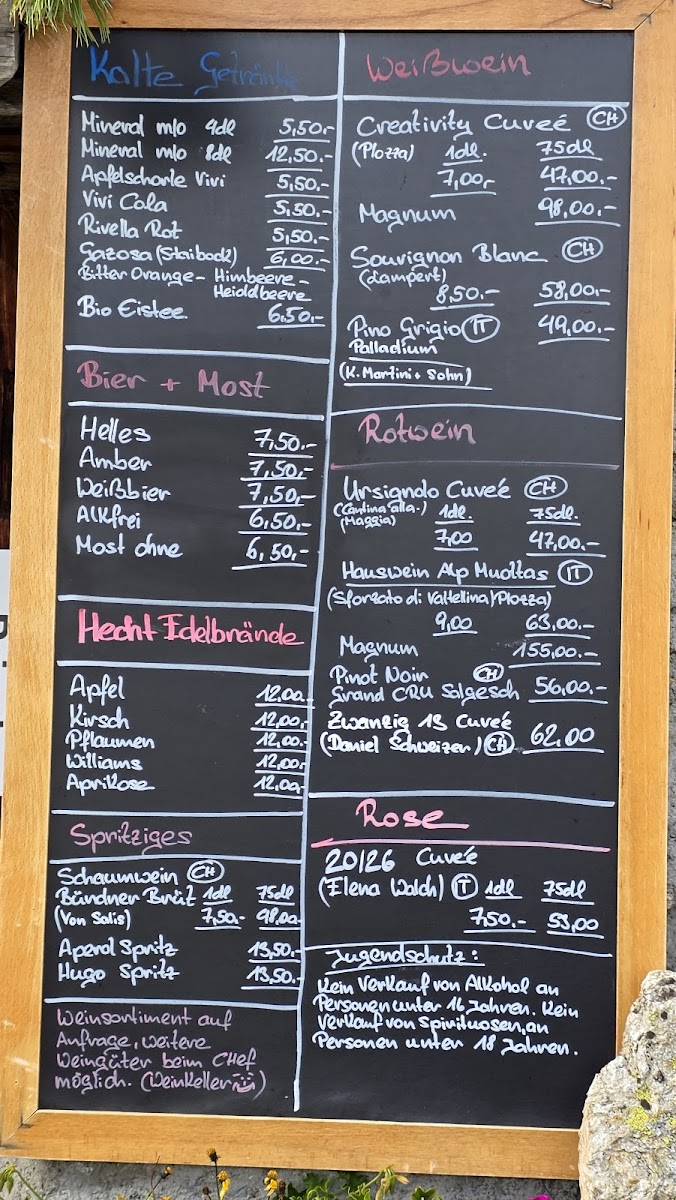 Kalte Getränke
Mineral m/o 4dl 5,50.-
Mineral m/o 8dl 12,50.-
Apfelschorle Vivi 5,50.-
Vivi Cola 5,50.-
Rivella Rot 5,50.-
Gazosa (Staibock) 6,00.-
Bitter Orange - Himbeere -
Heidelbeere
Bio Eistee 6,50.-
Bier + Most
Helles 7,50.-
Amber 7,50.-
Weißbier 7,50.-
Alkfrei 6,50.-
Most ohne 6,50.-
Hecht Edelbrände
Apfel 12,00.-
Kirsch 12,00.-
Pflaumen 12,00.-
Williams 12,00.-
Aprikose 12,00.-
Spritziges
Schaumwein CH
Bündner Brüt 1dl 75dl
(Von Salis) 7,50.- 98,00.-
Aperol Spritz 13,50.-
Hugo Spritz 13,50.-
Weinsortiment auf
Anfrage, weitere
Weingüter beim Chef
möglich. (Weinkeller)
Weißwein
Creativity Cuveé CH
(Plozza) 1dl. 75dl
7,00,- 47,00.-
Magnum 98,00.-
Souvignon Blanc CH
(Lampert)
8,50.- 58,00.-
Pino Grigio IT 49,00.-
Palladium
(K. Martini + Sohn)
Rotwein
Ursigndo Cuveé CH
(Cantina alla-) 1dl. 75dl.
(Maggia)
7,00 47,00.-
Hauswein Alp Muottas IT
(Sforzato di Valtellina/Plozza)
9,00 63,00.-
Magnum 155,00.-
Pinot Noir CH
Grand CRU Salgesch 56,00.-
Zwanzig 13 Cuveé
(Daniel Schweizer) CH 62,00
Rose
20/26 Cuveé
(Elena Walch) IT 1dl 75dl
7,50.- 53,00
Jugendschutz:
Kein Verkauf von Alkohol an
Personen unter 16 Jahren. Kein
Verkauf von Spirituosen, an
Personen unter 18 Jahren.